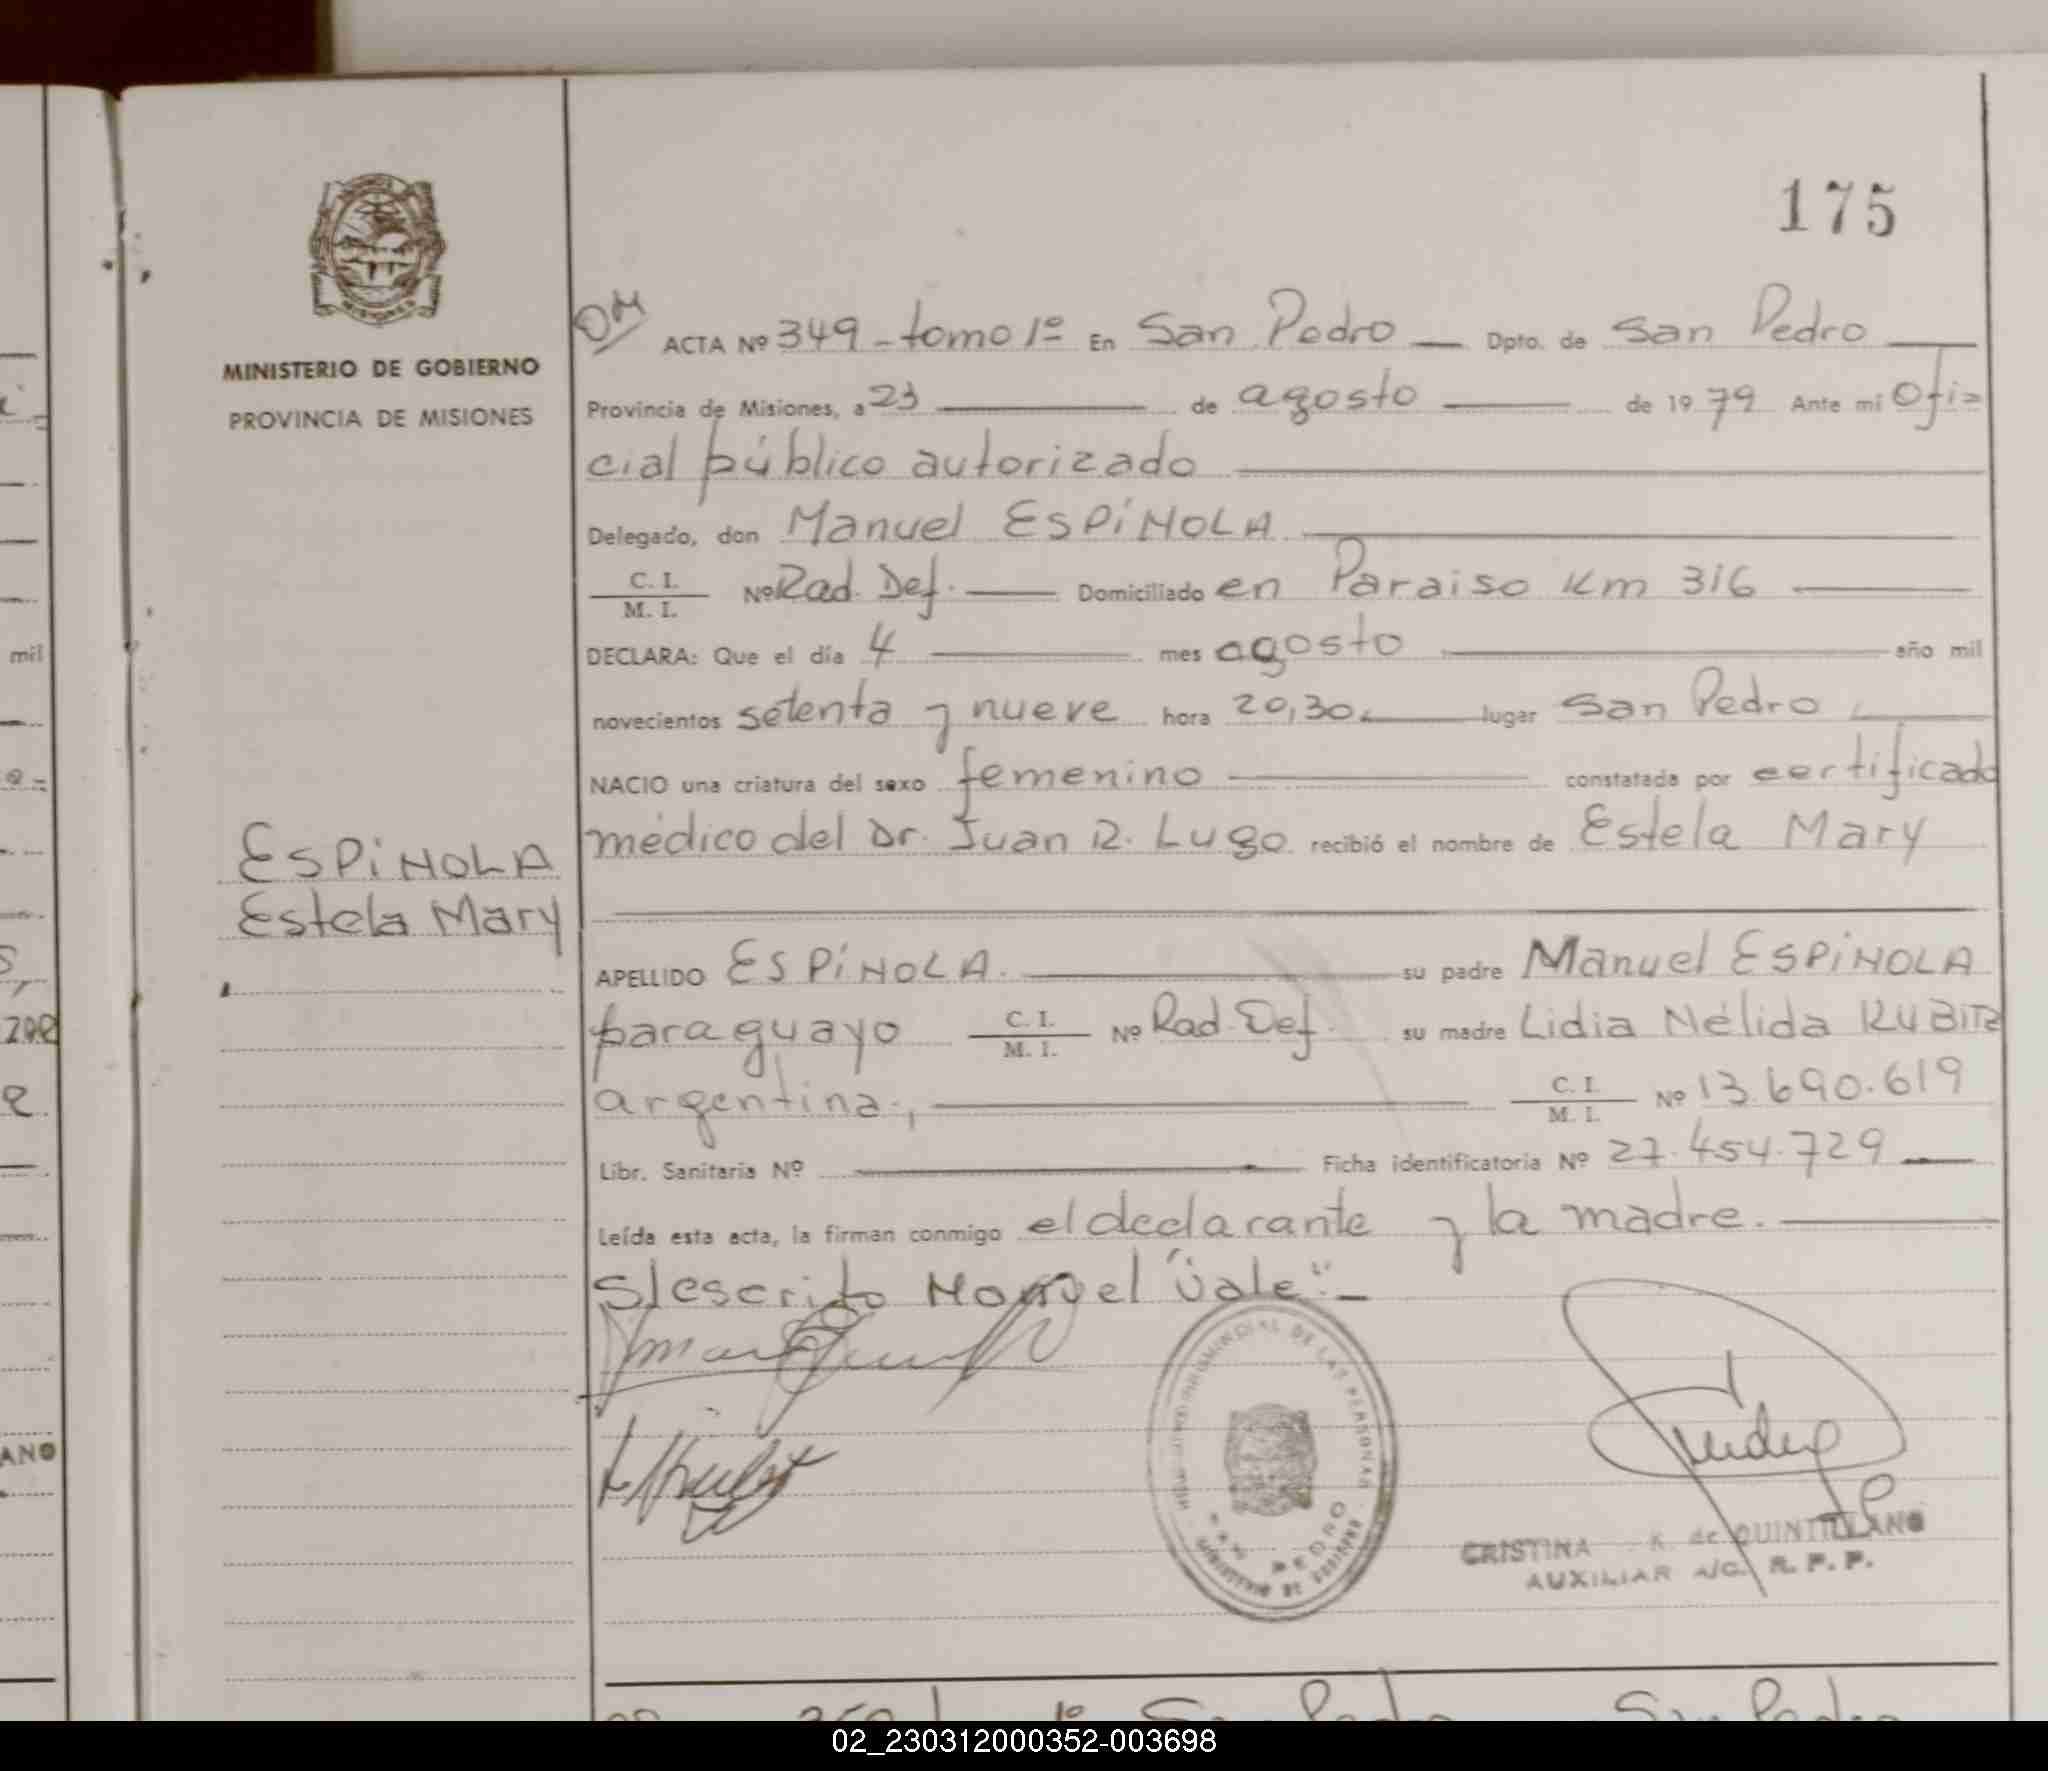 175
MINISTERIO DE GOBIERNO
PROVINCIA DE MISIONES
ESPÍNOLA
Estela Mary
DM ACTA Nº 349 - tomo 1º En San Pedro Dpto. de San Pedro
Provincia de Misiones, a 23 de agosto de 1979 Ante mi Ofi=
cial público autorizado
Delegado, don Manuel ESPÍNOLA
C. I. / M. I. Nº Rad. Def. Domiciliado en Paraiso Km 316
DECLARA: Que el día 4 mes agosto año mil
novecientos setenta y nueve hora 20,30 lugar San Pedro
NACIO una criatura del sexo femenino constatada por certificado
médico del Dr. Juan R. Lugo recibió el nombre de Estela Mary
APELLIDO ESPÍNOLA. su padre Manuel ESPÍNOLA
paraguayo C. I. / M. I. Nº Rad. Def. su madre Lidia Nélida KUBITZ
argentina., C. I. / M. I. Nº 13.690.619
Libr. Sanitaria Nº Ficha identificatoria Nº 27.454.729
Leída esta acta, la firman conmigo el declarante y la madre.
S/escrito Manuel "Vale".-
DE LAS PERSONAS
SAN PEDRO
MINISTERIO DE GOBIERNO
CRISTINA K. de QUINTILLANO
AUXILIAR A/C. R. P. P.
mil
ANO
02_230312000352-003698